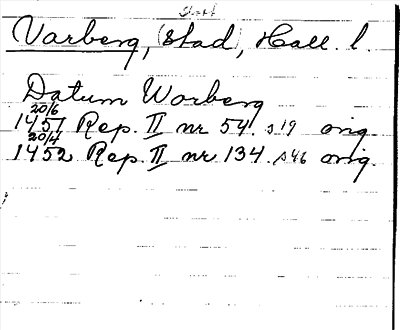 Varberg, (Stad), Hall. l.
Datum Worberg
20/6
1451 Rep. II nr 54. s19 orig.
20/4
1452 Rep. II nr 134. s46 orig.